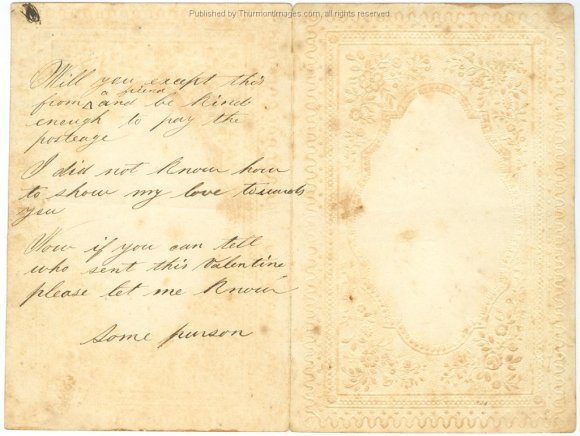 Published by ThurmontImages.com, all rights reserved
Will you except this
a friend
from ^ and be kind
enough to pay the
posteage
I did not know how
to show my love towards
you
Now if you can tell
who sent this valentine
please let me know
some purson